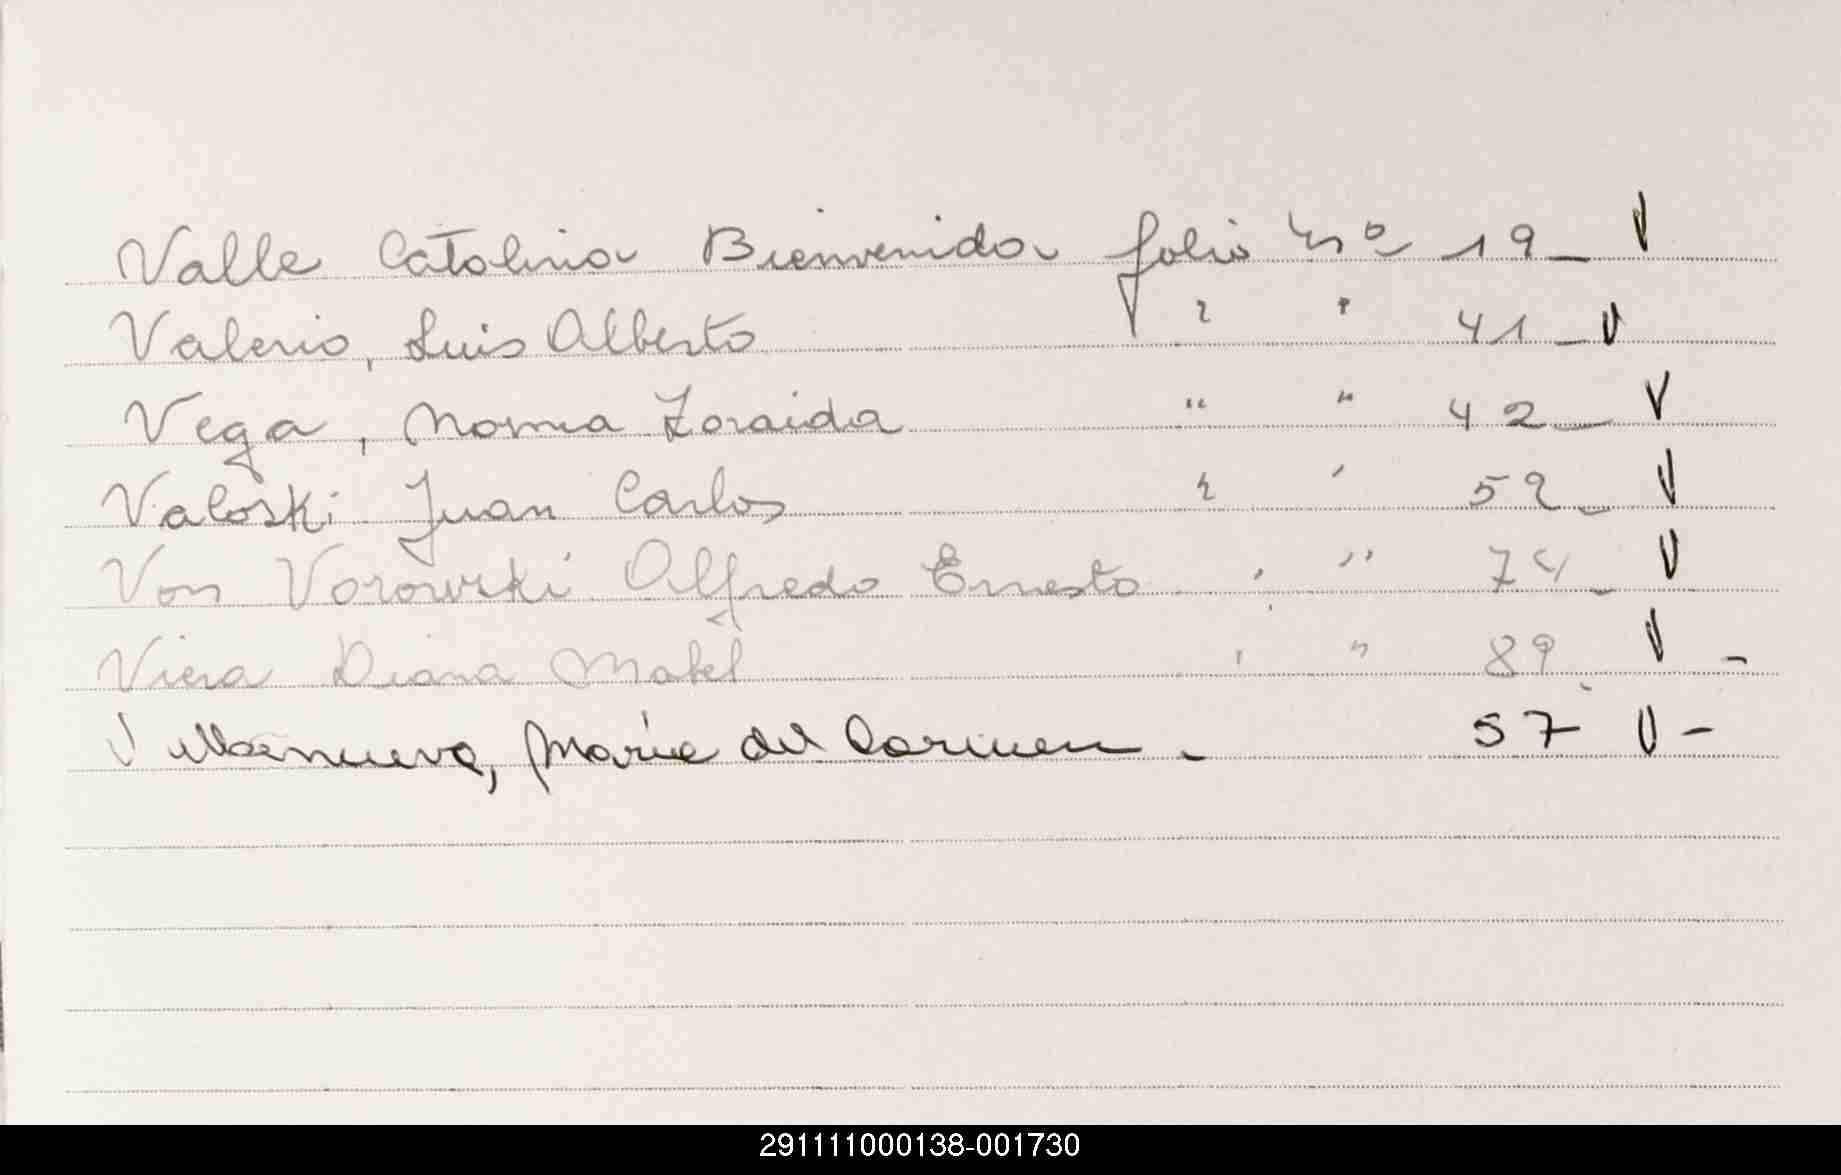 Valle Catalina Bienvenida folio Nº 19_ V
Valerio, Luis Alberto " " 41_ V
Vega, Norma Zoraida " " 42_ V
Valoski Juan Carlos " " 52_ V
Von Vorowski Alfredo Ernesto " " 74_ V
Viera Diana Mabel " " 89_ V -
Villanueva, María del Carmen - 57 V -
291111000138-001730